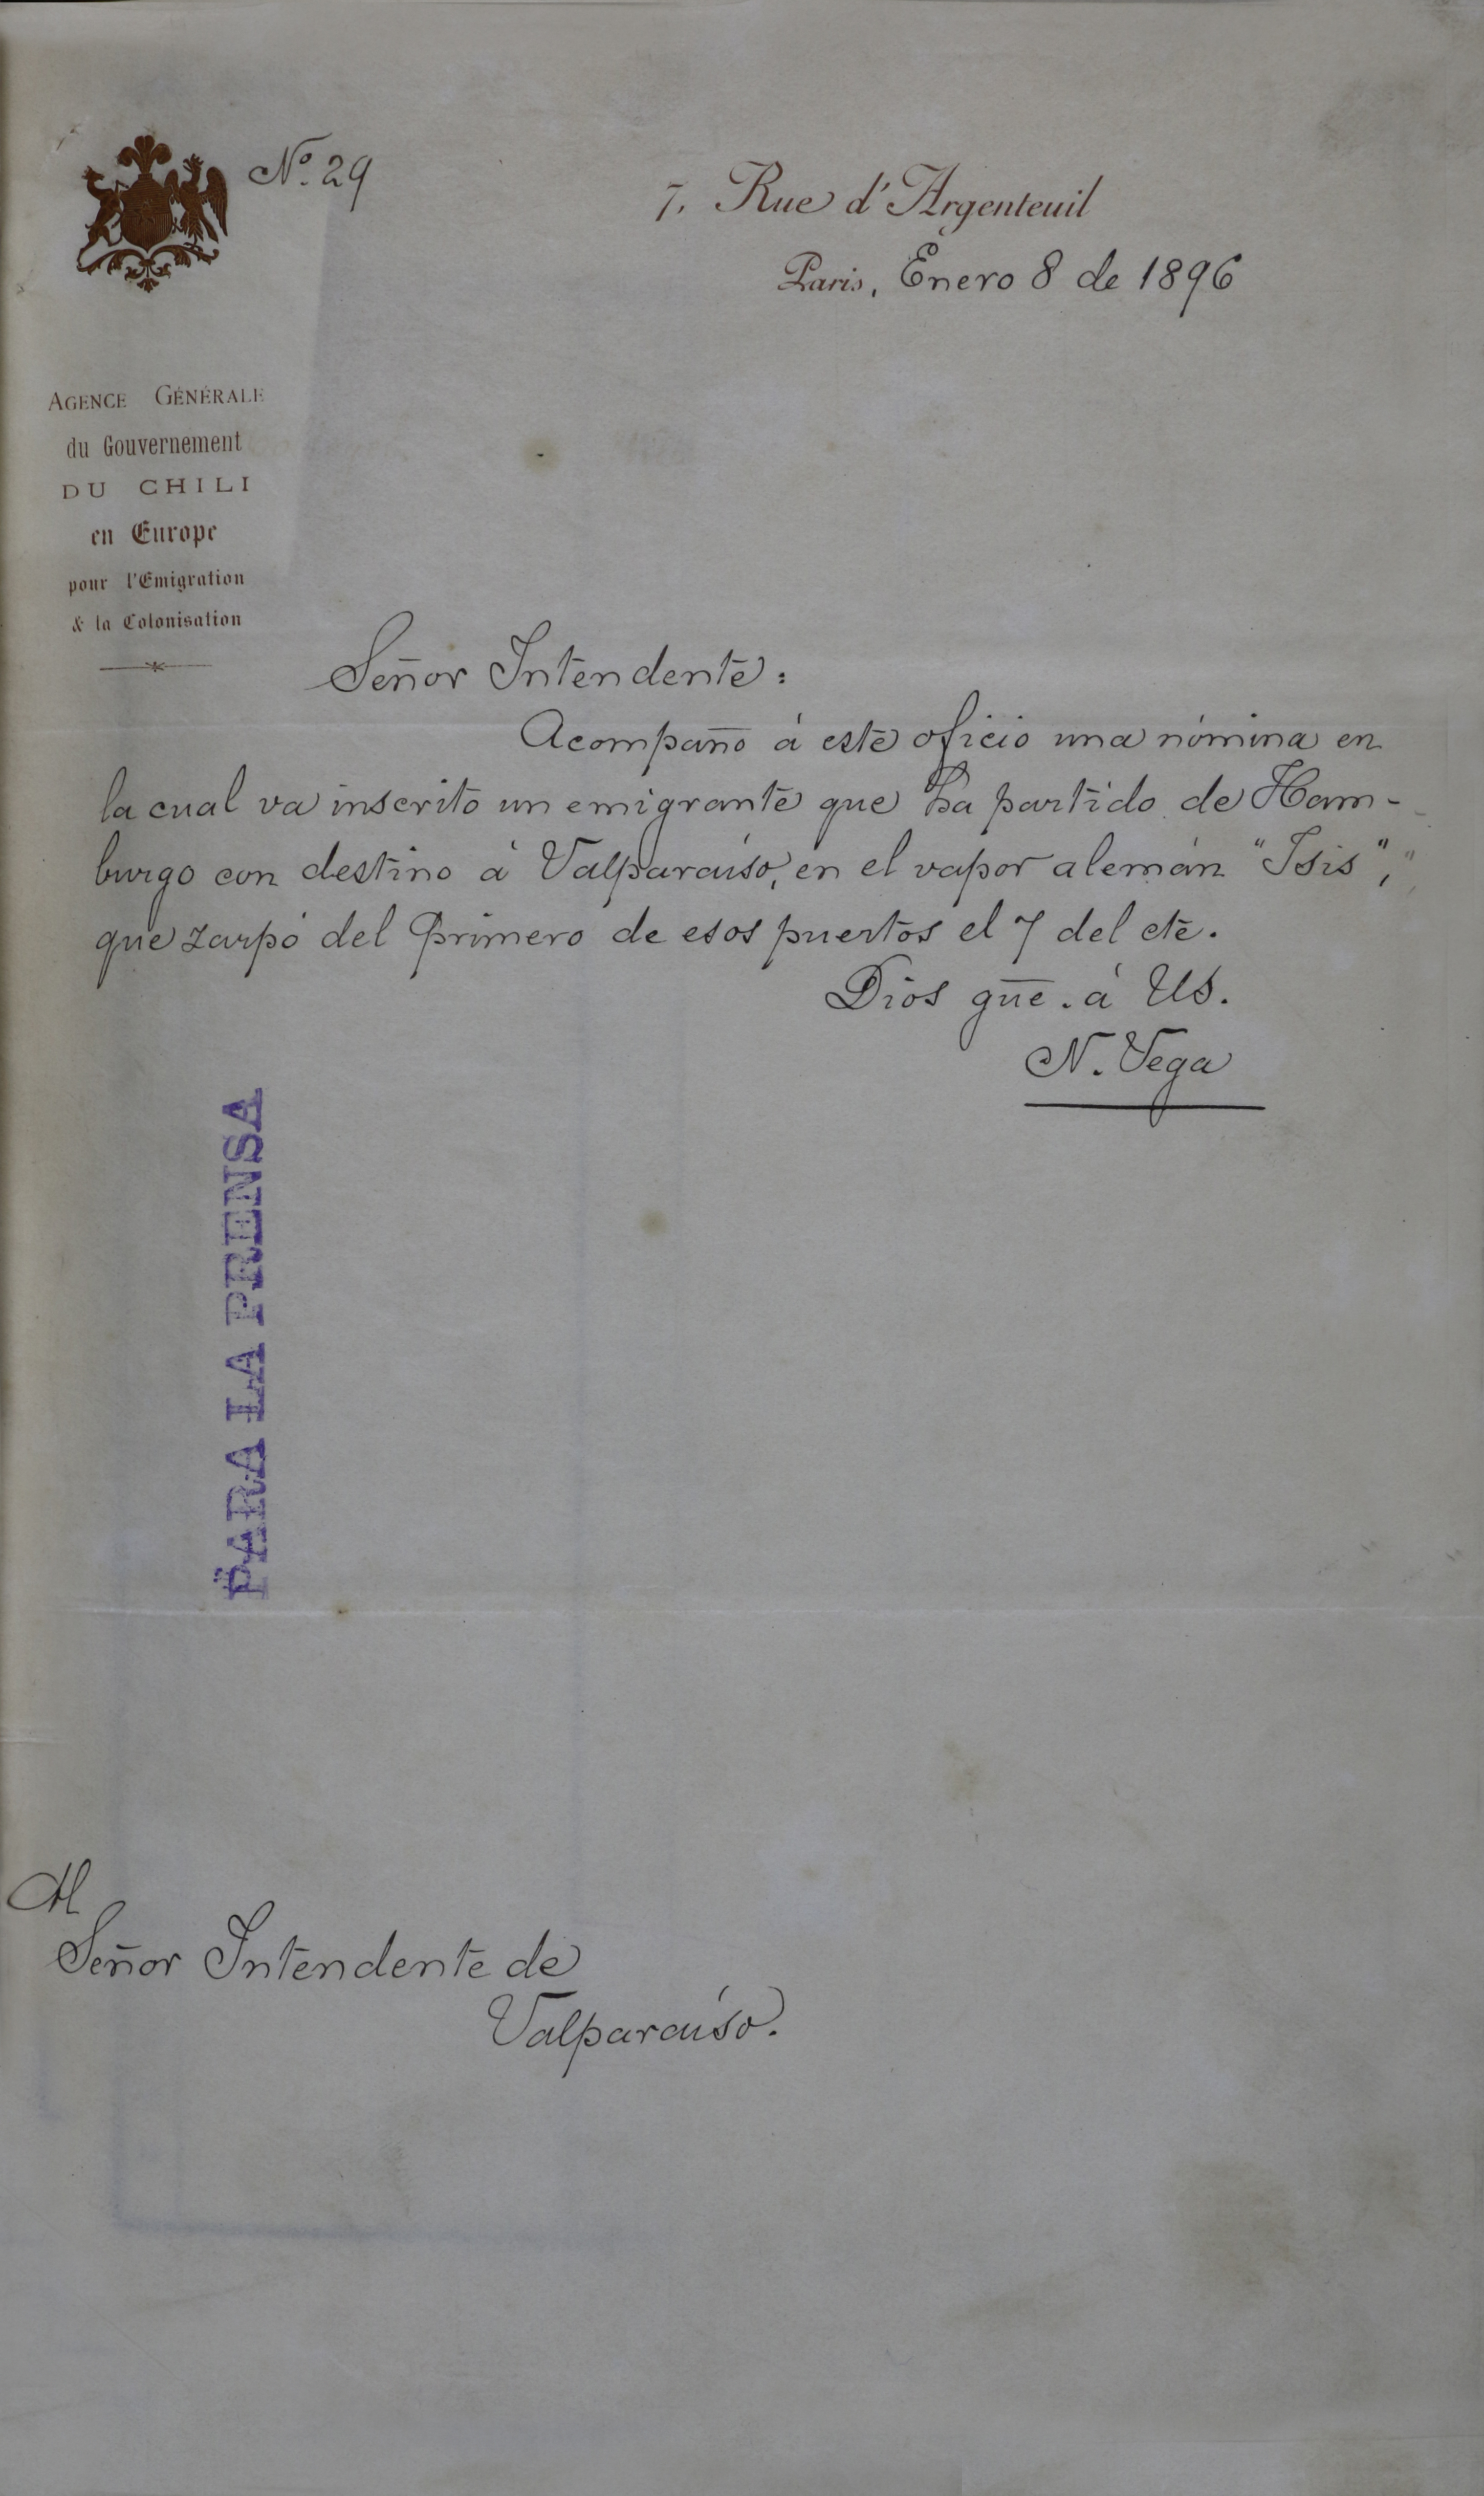 Nº. 29
7, Rue d'Argenteuil
Paris, Enero 8 de 1896
AGENCE GÉNÉRALE
du Gouvernement
DU CHILI
en Europe
pour l'Emigration
& la Colonisation
Señor Intendente:
Acompaño á este oficio una nómina en
la cual va inscrito un emigrante que ha partido de Ham-
burgo con destino á Valparaíso, en el vapor alemán "Isis",
que zarpó del primero de esos puertos el 7 del cte.
Dios gue. á US.
N. Vega
PARA LA PRENSA
Al
Señor Intendente de
Valparaíso.